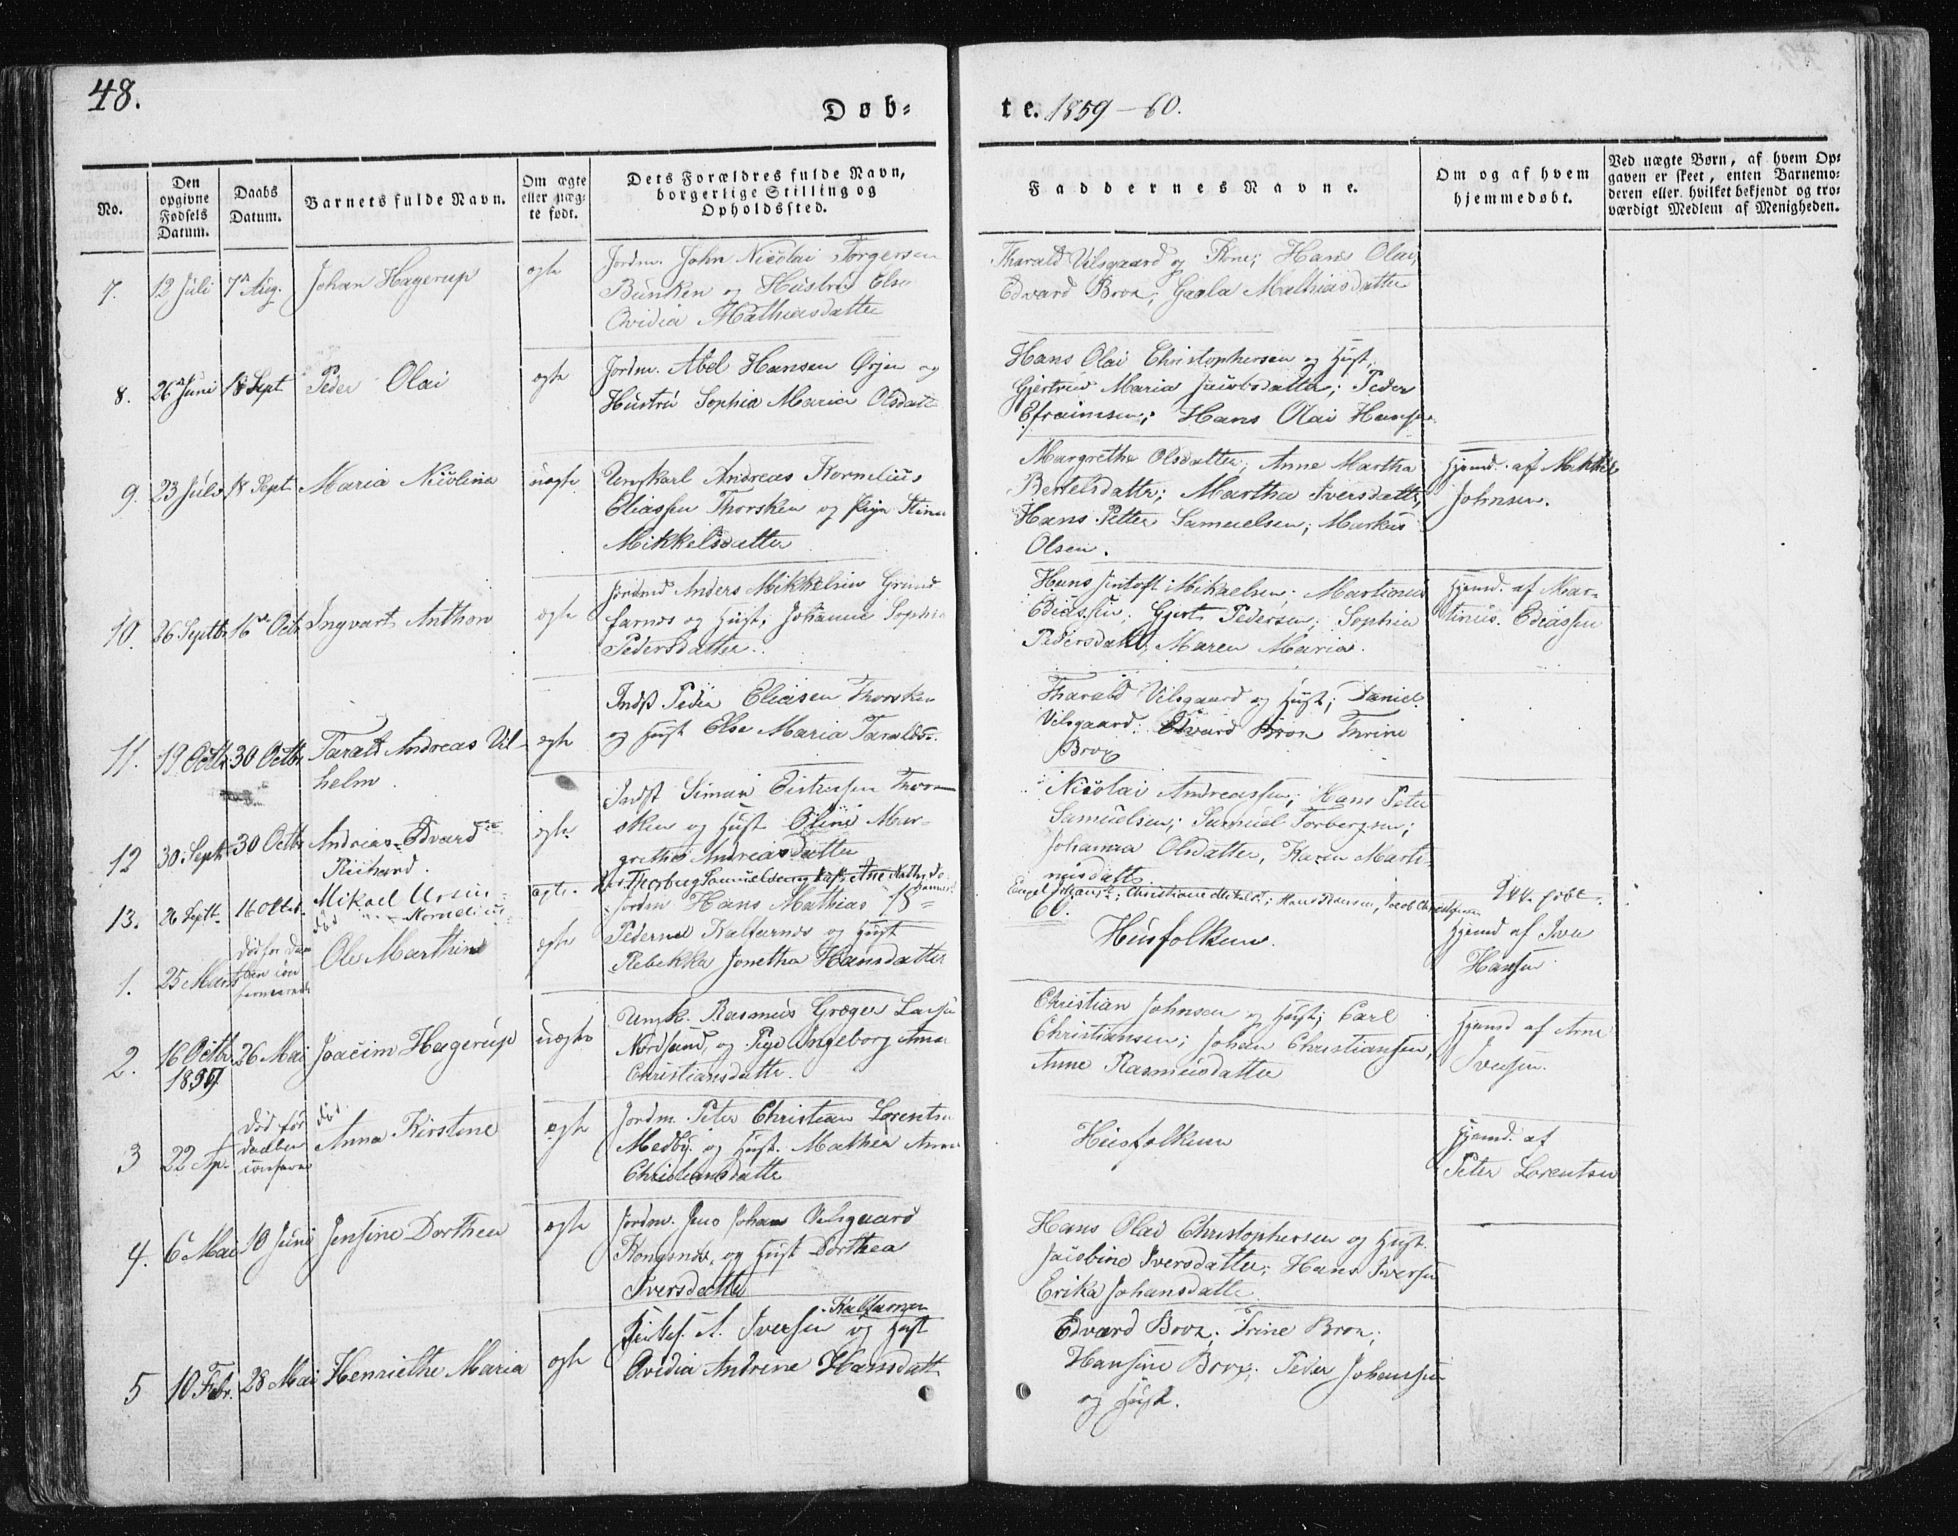 48.
Døb-
te. 1859-60.
No.
Den
opgivne
Fødsels
Datum.
Daabs
Datum.
Barnets fulde Navn.
Om ægte
eller uæg-
te født.
Dets Forældres fulde Navn,
borgerlige Stilling og
Opholdssted.
Faddernes Navne.
Om og af hvem
hjemmedøbt.
Ved uægte Børn, af hvem Op-
gaven er skeet, enten Barnemo-
deren eller hvilket bekjendt og tro-
værdigt Medlem af Menigheden.
7.
12 Juli
7de Aug.
Johan Hagerup
ægte
Jordm. John Nicolai Torgersen
Bunken og Hustru Else
Ovidia Mathiasdatter
Tharald Vilsgaard og Kone; Hans Olai;
Edvard Brox; Mathiasdatter
8.
26 Juni
18 Sept
Peder Olai
ægte
Jordm. Abel Hansen Ørjen og
Hustru Sophia Maria Olsdatt
Hans Olai Christophersen og Hust.
Gjertrud Maria Jacobsdatter; Peder
Efraimsen; Hans Olai Hansen
9.
23 Juli
18 Sept
Maria Nicolina
uægte
Ungkarl Andreas Kornelius
Eliassen Thorsken og Pige Stina
Mikkelsdatter
Margrethe Olsdatter; Anne Martha
Bertelsdatter; Martha Iversdatter,
Hans Petter Samuelsen; Markus
Olsen.
Hjemd. af Mikkel
Johnsen.
10.
26 Septbr
16de Octb
Ingvart Anthon
ægte
Jordmd Anders Mikkelsen Grund
farnes og Hust. Johanne Sophia
Pedersdatter.
Hans Jentoft Mikaelsen; Martinus
Ediassen; Gjert Pedersen; Sophia
Pedersdatt, Maren Maria.
Hjemd. af Mar-
tinus Ediassen
11.
19 Octbr
30 Octbr
Tarald Andreas Vil-
helm.
ægte
Indst Peder Eliasen Thorsken
og Hust Else Maria Taraldsd.
Tharald Vilsgaard og Hust; Daniel
Vilsgaard. Edvard Brox Thrine
Brox
12
30 Septb
30 Octbr
Andreas Edvard
Richard.
ægte
Indst Simon Thor-
sken og Hust Oline Mar-
grethe Andreasdatter
Nicolai Andreassen; Hans Peter
Samuelsen; Samuel Torbergsen;
Johanna Olsdatter, Karen Marti-
nusdatt.
13.
26 Septb.
16 Octbr.
Mikael Ursin
Kornelius
ægte.
Thorberg Samuelsen og Anne Kathr.
Engel Christiane Mikelsd.; Hans Hansen, Jacob Christophersen
født.
60.
1.
25 Marts
Død før Daa
ben con
firmeredes
død
Ole Marthin
ægte
Jordm Hans Mathias
Pedersen Kaldfarnes og Hust
Rebekka Jonetha Hansdatter
Husfolkene.
Hjemd af Iver
Hansen
2.
16 Octbr
1859
26 Mai
Joachim Hagerup
uægte
Ungk. Rasmus Græger Larsen
Nordsund, og Pige Ingeborg Anna
Christiansdatter.
Christian Johnsen og Hust; Carl
Christiansen; Johan Christiansen,
Anne Rasmusdatter
Hjemd af Arne
Iversen.
3
22 Ap.
Død før
Daaben
conferes
død
Anna Kirstine
ægte
Jordm. Peter Christian Lorentsen
Medby og Hust. Mathea Anna
Christiansdatter
Husfolkene
Hjemd. af
Peter Lorentsen
4.
6 Mai
10 Juni
Jensine Dorthea
ægte
Jordm. Jens Johan Vilsgaard
Kongsnes, og Hust Dorthea
Iversdatter
Hans Olai Christophersen og Hust.
Jacobine Iversdatter; Hans Iversen
Erika Johansdatter
5
10 Febr.
28 Mai
Henriethe Maria
ægte
A. Iversen Kalfarnes og Hust
Ovidia Andrine Hansdatt
Edvard Brox; Trine Brox;
Hansine Brox; Peder Johanssen
og Hust.